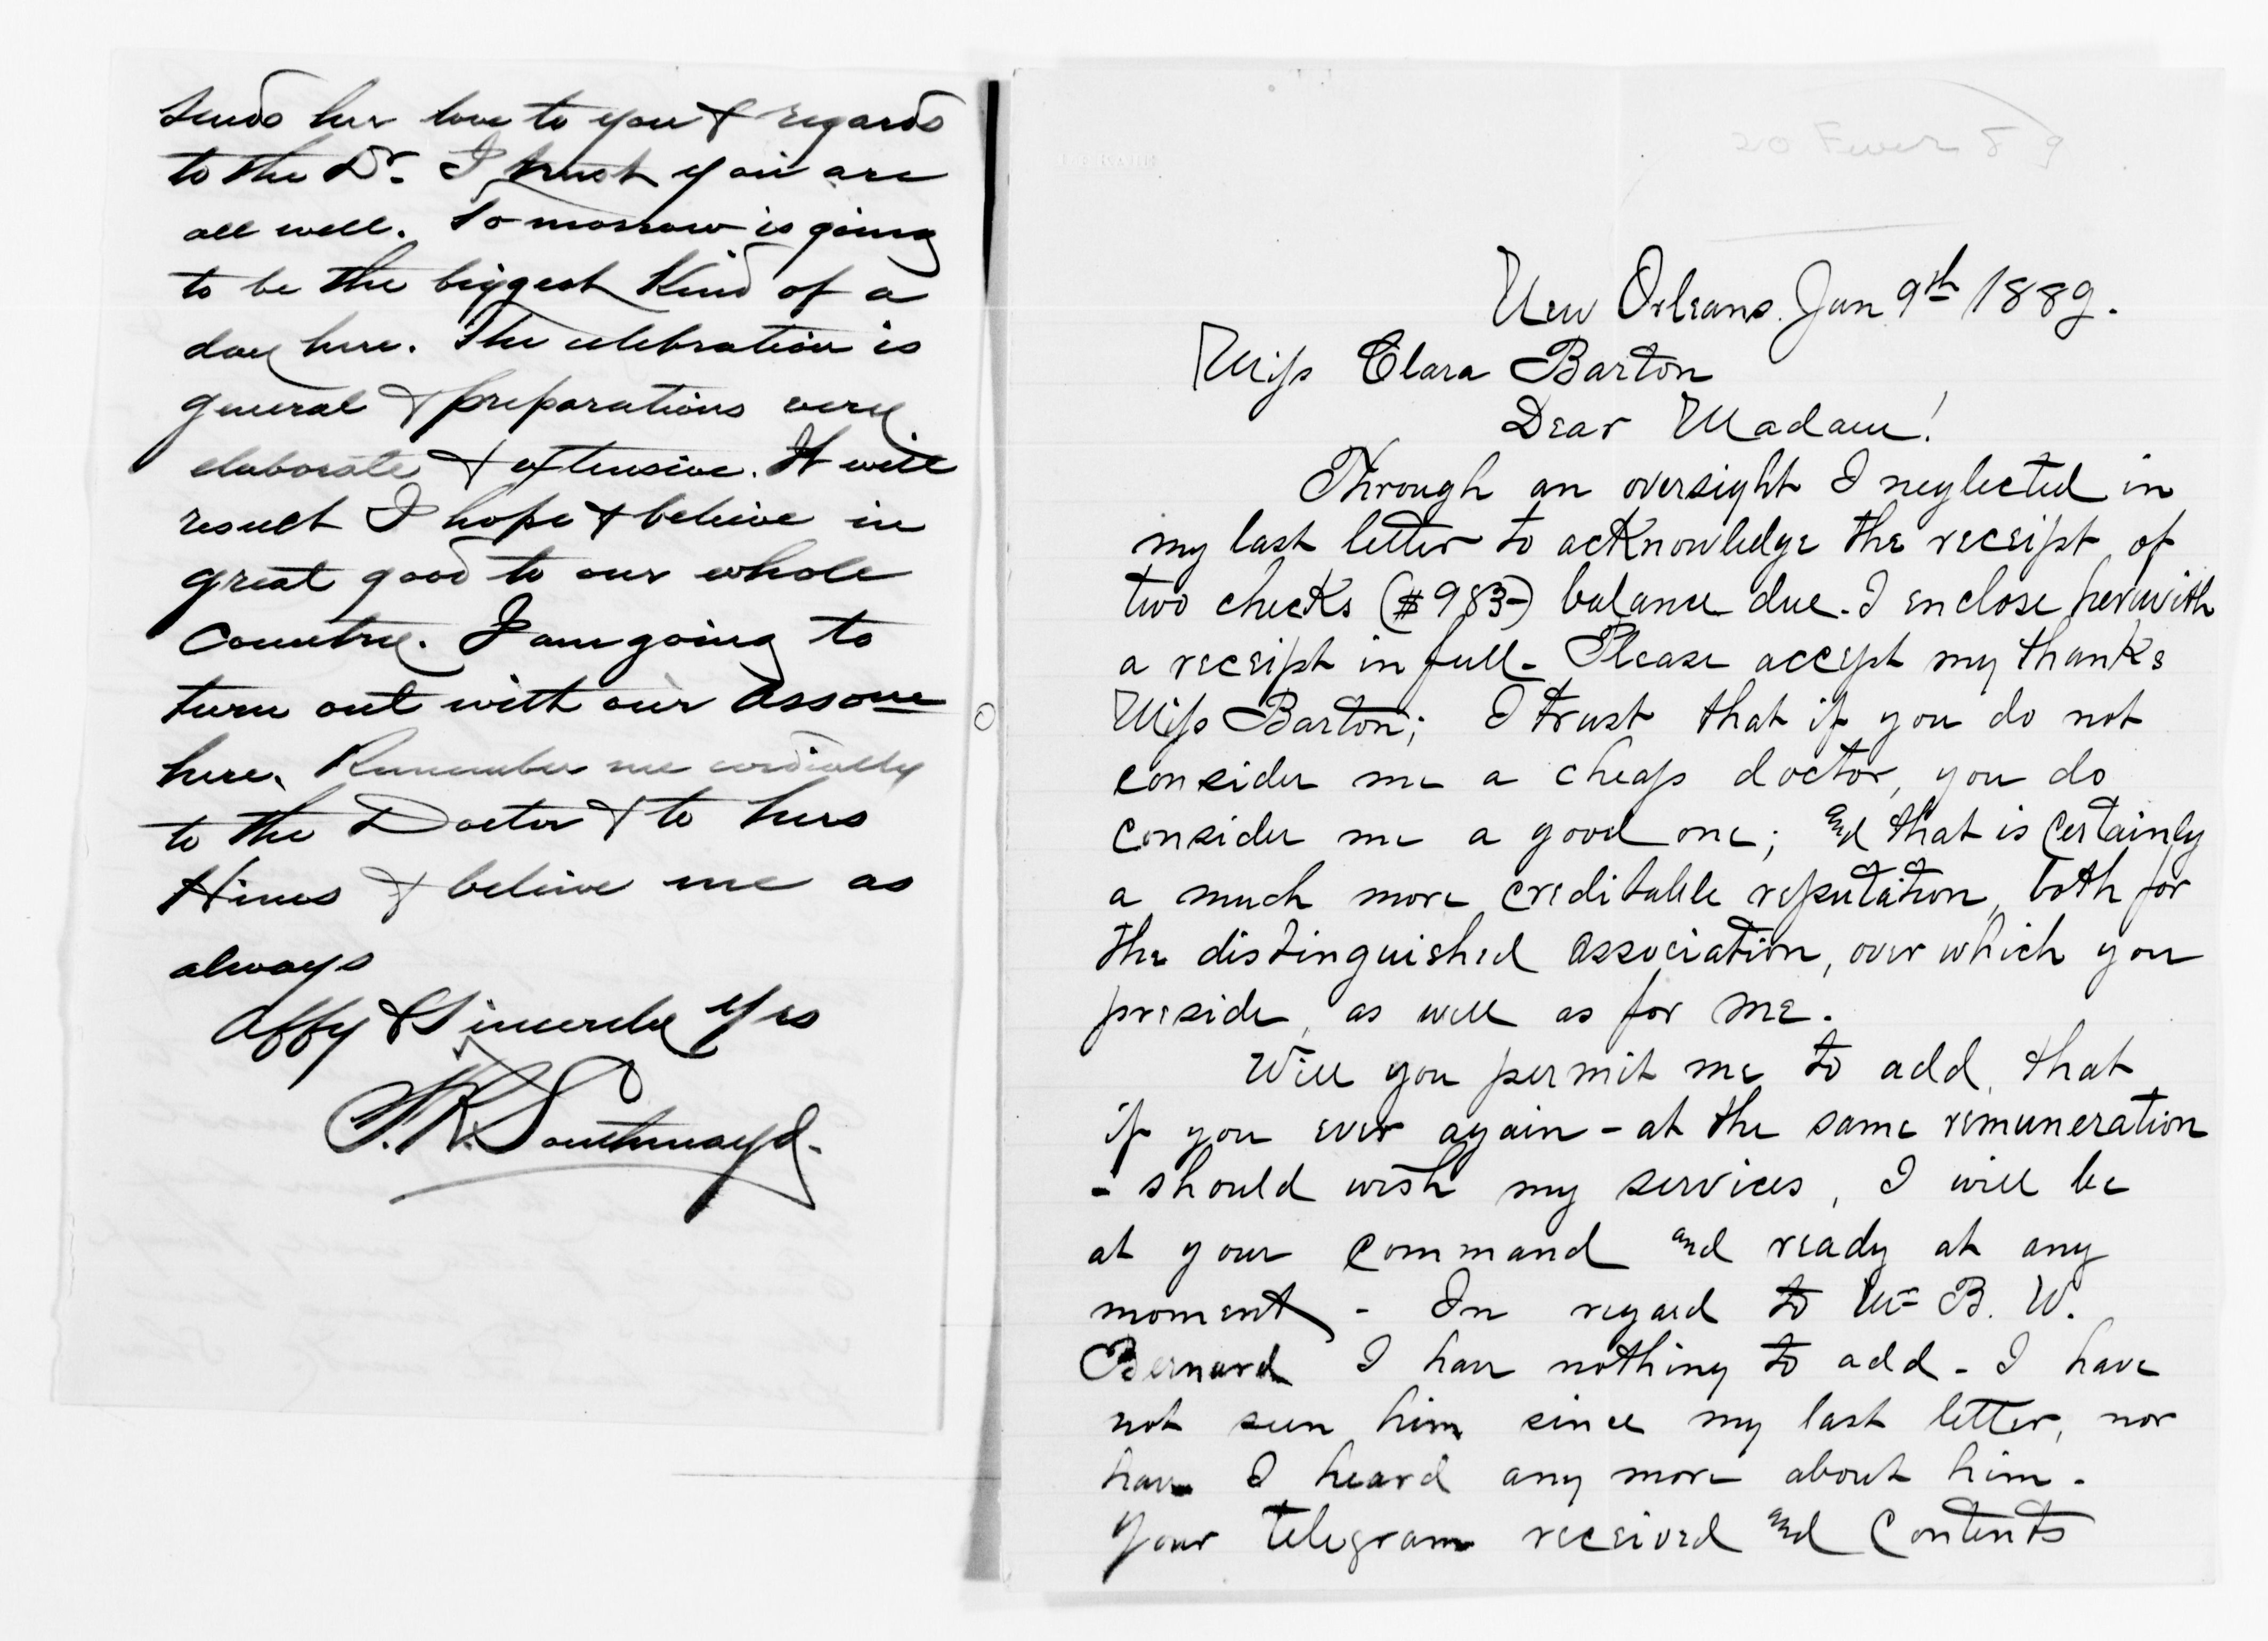 sends her love to you & regards
to the Dr. I trust you are
all well. To morrow is going
to be the biggest Kind of a
day here. The celebration is
general & preparations very
elaborate & extensive. It will
result I hope & believe in
great good to our whole
Country. I am going to
turn out with our Assone
here. Remember me cordially
to the Doctor & to
Hines & believe me as
always
Affy & Sincerely Yrs
F. R. Southmayd.
New Orleans. Jan 9th 1889.
Miss Clara Barton
Dear Madam!
Through an oversight I neglected in
my last letter to acknowledge the receipt of
two checks ($983-) balance due. I enclose herewith
a receipt in full. Please accept my thanks
Miss Barton; I trust that if you do not
consider me a cheap doctor, you do
consider me a good one; and that is certainly
a much more creditable reputation, both for
the distinguished association, over which you
preside, as well as for me.
Will you permit me to add, that
if you ever again - at the same remuneration
- should wish my services, I will be
at your command and ready at any
moment - In regard to Mr B. W.
Bernard I have nothing to add - I have
not seen him since my last letter, nor
have I heard any more about him.
Your telegram received and contents